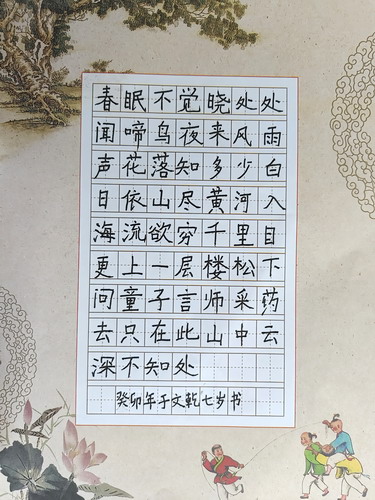 春眠不觉晓处处
闻啼鸟夜来风雨
声花落知多少白
日依山尽黄河入
海流欲穷千里目
更上一层楼松下
问童子言师采药
去只在此山中云
深不知处
癸卯年于文乾七岁书